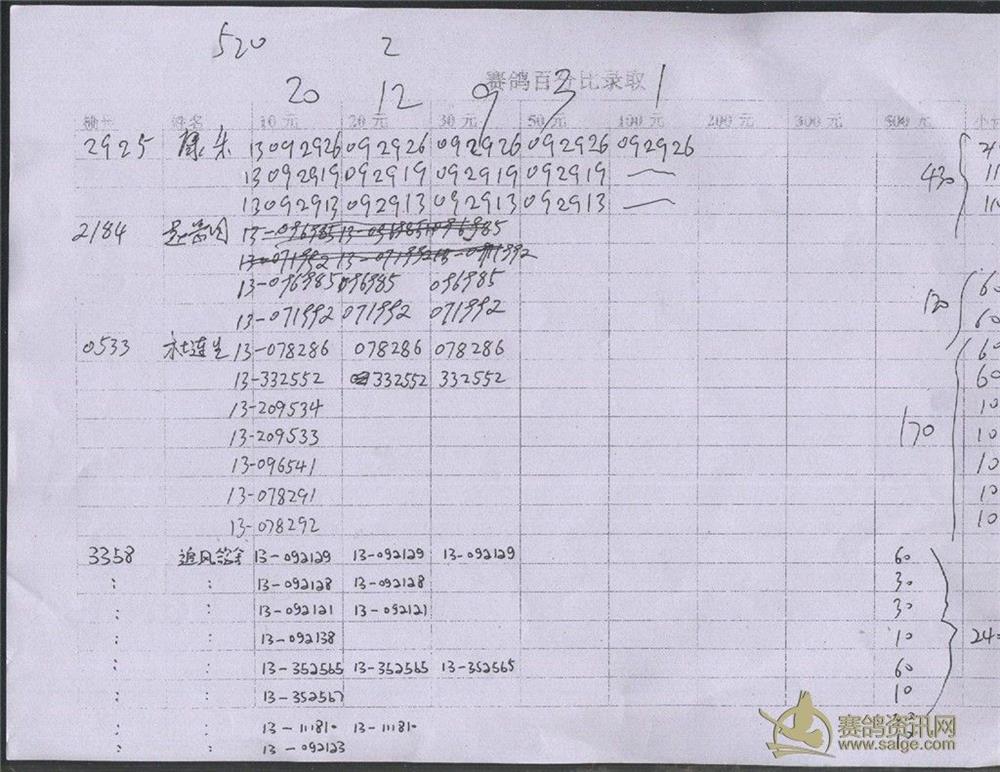 520 2
赛鸽百分比录取
20 12 9 3 1
姓名 10元 20元 30元 50元 100元 200元 300元 500元
2925 13092926 092926 092926 092926 092926
13092919 092919 092919 092919 —
430
13092913 092913 092913 092913 —
2184 13-096985 13-096985 13-096985
13-071992 13-071992 13-071992
13-096985 096985 096985 60
120
13-071992 071992 071992 60
0533 杜连生 13-078286 078286 078286 60
13-332552 332552 332552 60
13-209534 10
170
13-209533 10
13-096541 10
13-078291 10
13-078292 10
3358 追风 13-092129 13-092129 13-092129 60
: : 13-092128 13-092128 30
: : 13-092121 13-092121 30
: : 13-092138 10 240
: : 13-352565 13-352565 13-352565 60
: : 13-352567 10
: : 13-111810 13-111810
: : 13-092123
赛鸽资讯网
www.saige.com